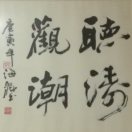 聽濤
觀潮
庚寅年海